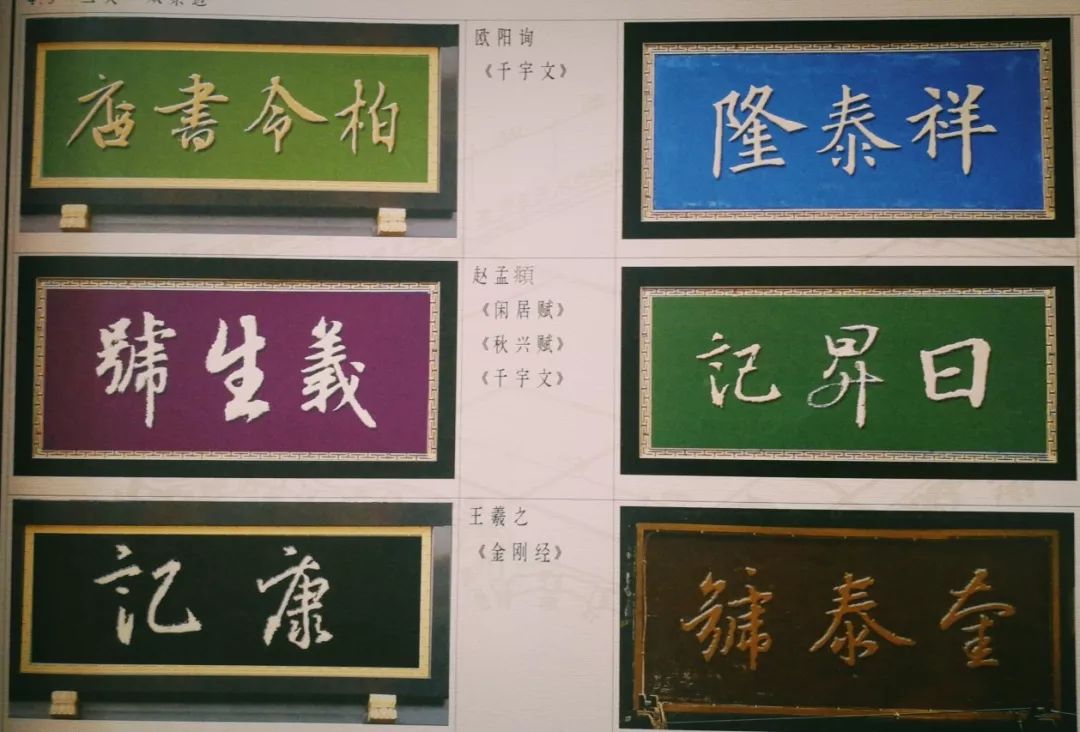 柏令書店
欧阳询
《千字文》
祥泰隆
義生號
赵孟頫
《闲居赋》
《秋兴赋》
《千字文》
日昇記
康記
王羲之
《金刚经》
奎泰號